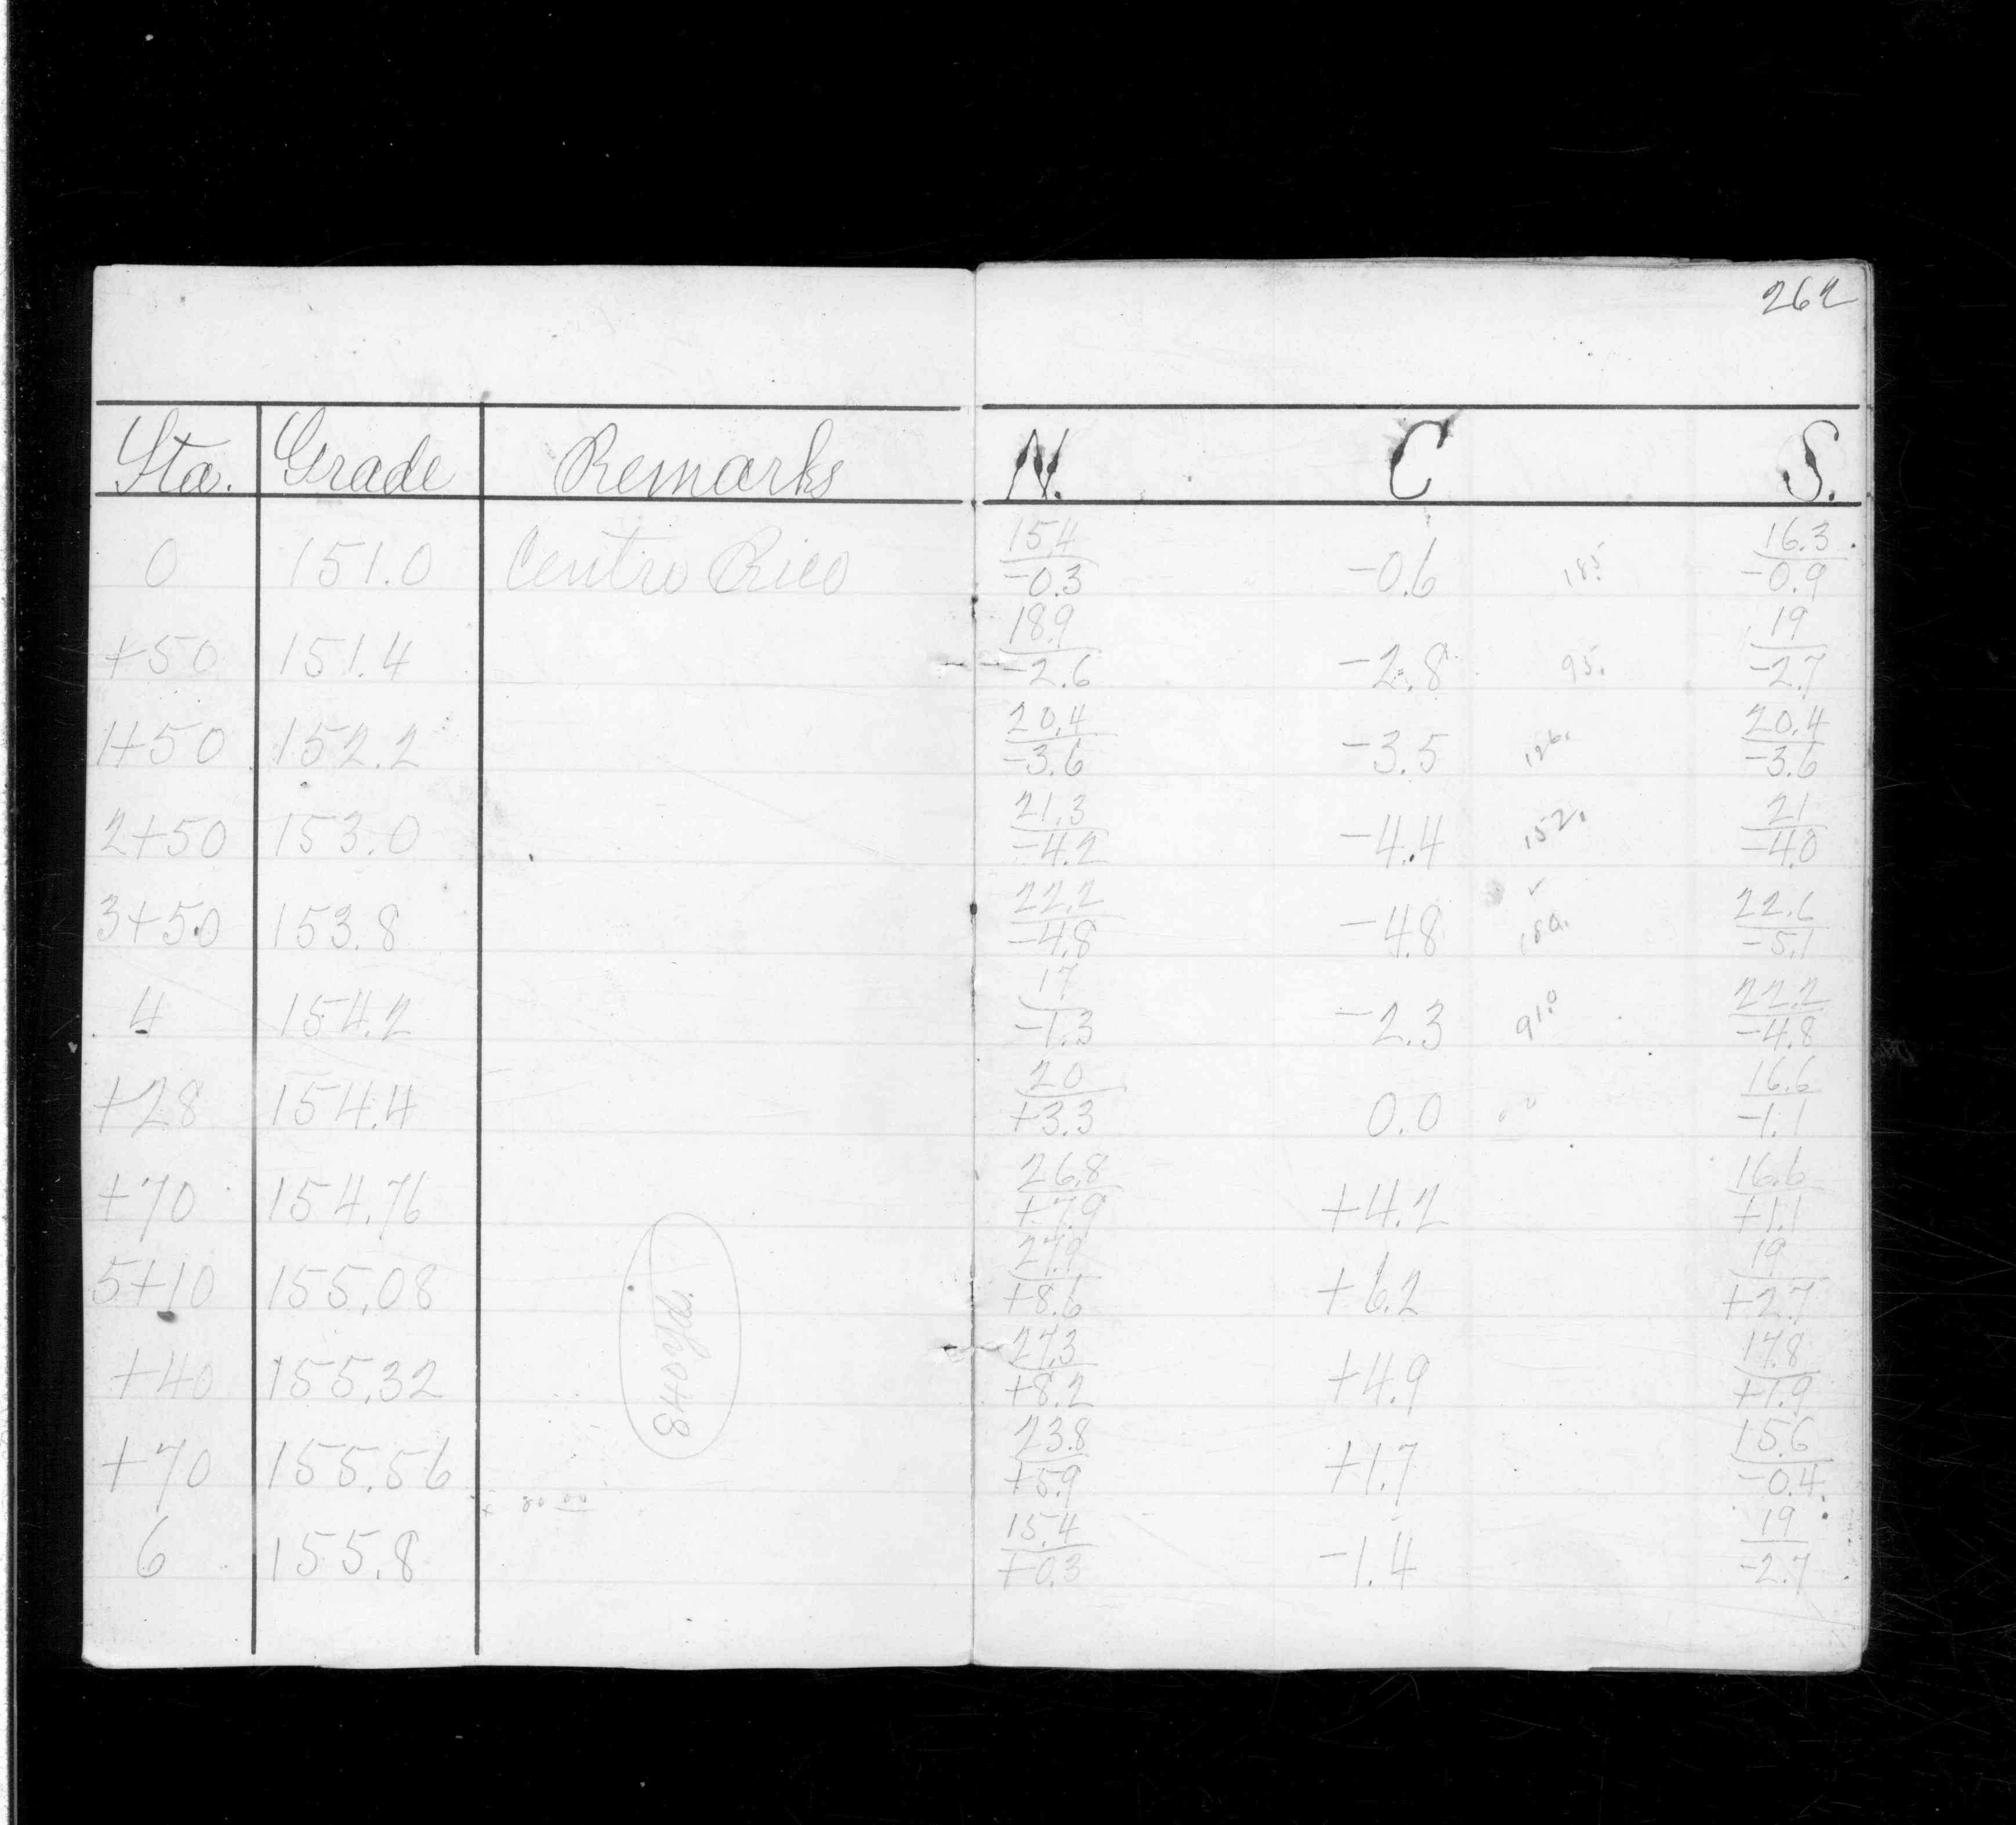 262
Sta. Grade Remarks N. C S.
0 151.0 Centro Rico 15.4/-0.3 -0.6 18.5 16.3/-0.9
+50 151.4 18.9/-2.6 -2.8 95. 19/-2.7
1+50 152.2 20.4/-3.6 -3.5 126. 20.4/-3.6
2+50 153.0 21.3/-4.2 -4.4 152. 21/-4.0
3+50 153.8 22.2/-4.8 -4.8 180. 22.6/-5.1
4 154.2 17/-1.3 -2.3 91.0 22.2/-4.8
+28 154.4 20/+3.3 0.0 16.6/-1.1
+70 154.76 26.8/+7.9 +4.2 16.6/+1.1
5+10 155.08 27.9/+8.6 +6.2 19/+2.7
+40 155.32 27.3/+8.2 +4.9 17.8/+1.9
+70 155.56 23.8/+5.9 +1.7 15.6/-0.4
6 155.8 15.4/+0.3 -1.4 19/-2.7
840 yds.